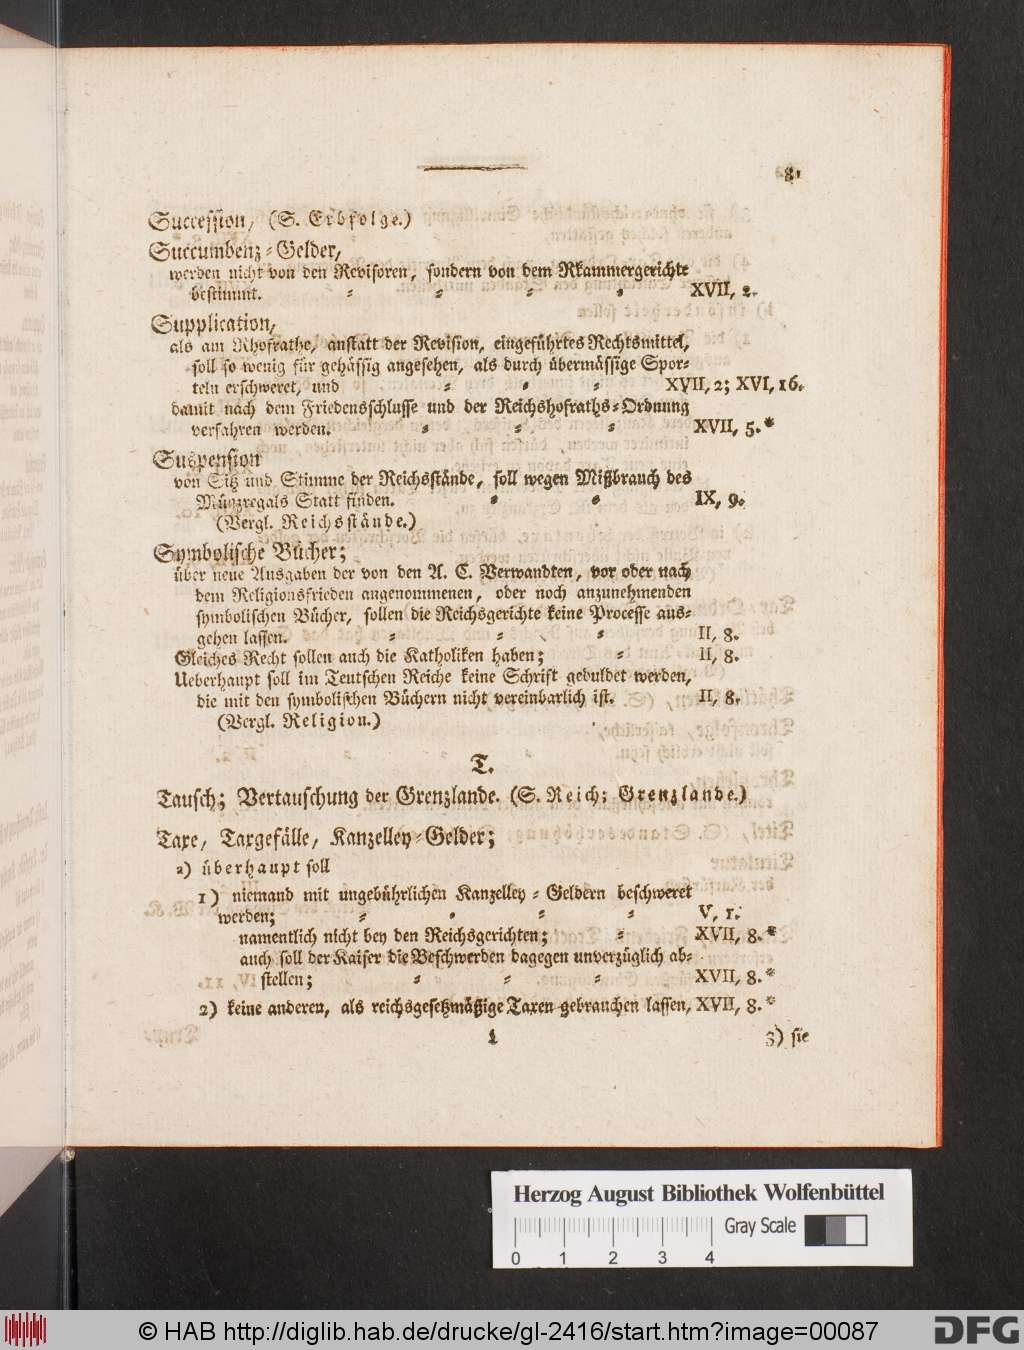 81
Succession, (S. Erbfolge.)
Succumbenz-Gelder,
werden nicht von den Revisoren, sondern von dem Rkammergerichte
bestimmt. XVII, 2.
Supplication,
als am Rhofrathe, anstatt der Revision, eingeführtes Rechtsmittel,
soll so wenig für gehässig angesehen, als durch übermässige Spor-
teln erschweret, und XVII, 2; XVI, 16.
damit nach dem Friedensschlusse und der Reichshofraths-Ordnung
verfahren werden. XVII, 5.*
Suspension
von Sitz und Stimme der Reichsstände, soll wegen Mißbrauch des
Münzregals Statt finden. IX, 9.
(Vergl. Reichsstände.)
Symbolische Bücher;
über neue Ausgaben der von den A. C. Verwandten, vor oder nach
dem Religionsfrieden angenommenen, oder noch anzunehmenden
symbolischen Bücher, sollen die Reichsgerichte keine Processe aus-
gehen lassen. II, 8.
Gleiches Recht sollen auch die Katholiken haben; II, 8.
Ueberhaupt soll im Teutschen Reiche keine Schrift geduldet werden,
die mit den symbolischen Büchern nicht vereinbarlich ist. II, 8.
(Vergl. Religion.)
T.
Tausch; Vertauschung der Grenzlande. (S. Reich; Grenzlande.)
Taxe, Taxgefälle, Kanzelley-Gelder;
a) überhaupt soll
1) niemand mit ungebührlichen Kanzelley-Geldern beschweret
werden; V, 1.
namentlich nicht bey den Reichsgerichten; XVII, 8.*
auch soll der Kaiser die Beschwerden dagegen unverzüglich ab-
stellen; XVII, 8.*
2) keine anderen, als reichsgesetzmäßige Taxen gebrauchen lassen, XVII, 8.*
L
3) sie
Herzog August Bibliothek Wolfenbüttel
Gray Scale
0 1 2 3 4
© HAB http://diglib.hab.de/drucke/gl-2416/start.htm?image=00087
DFG